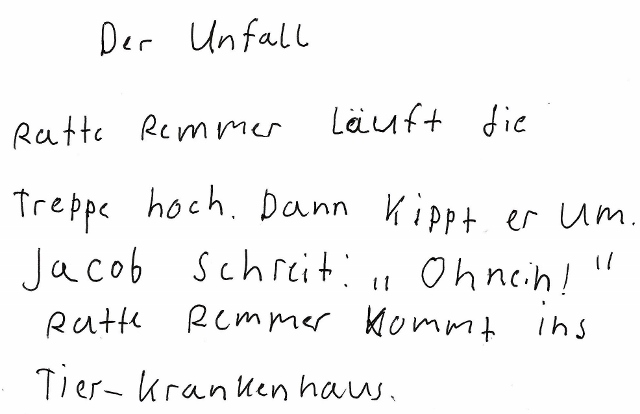 Der Unfall
Ratte Remmer Läuft die
Treppe hoch. Dann Kippt er um.
Jacob Schreit: „Ohnein!"
Ratte Remmer Kommt ins
Tier-Krankenhaus.